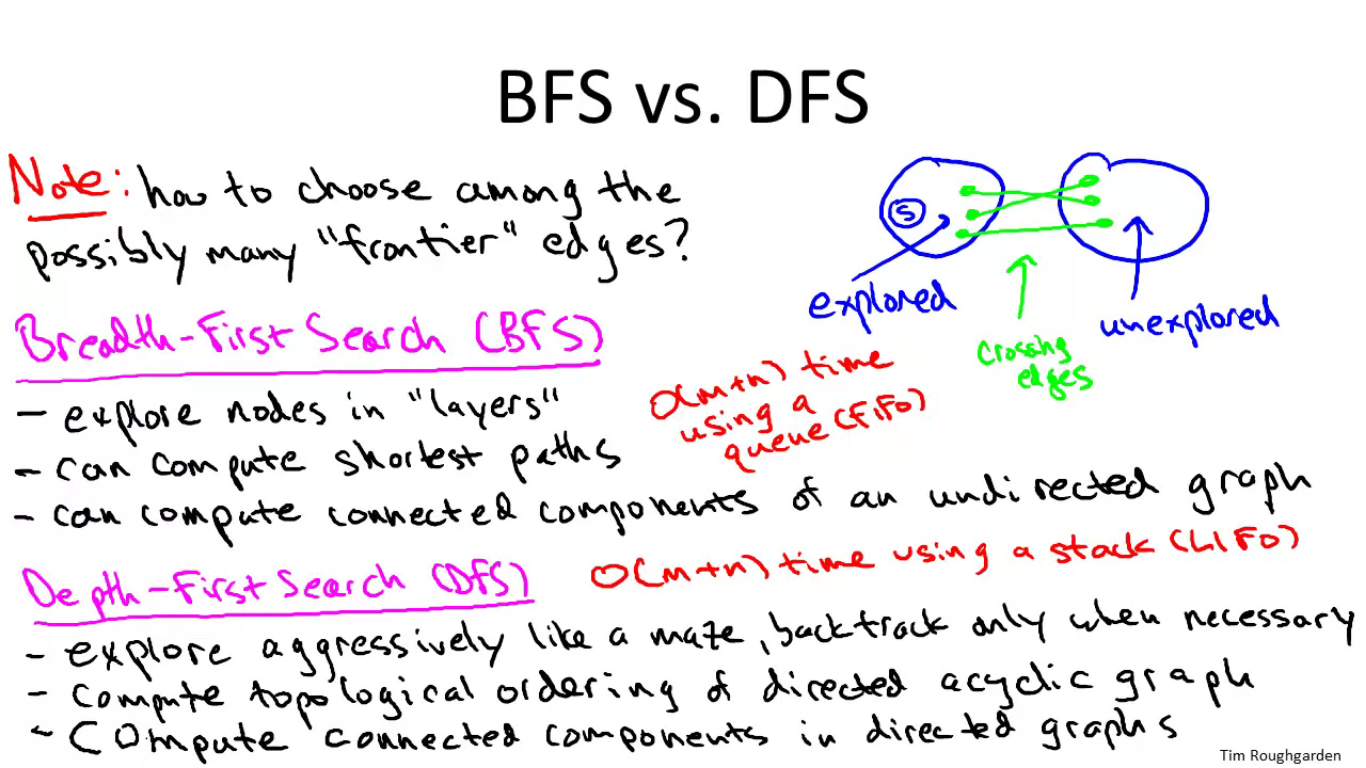 BFS vs. DFS
Note: how to choose among the
possibly many "frontier" edges?
S
explored
unexplored
crossing
edges
Breadth-First Search (BFS)
- explore nodes in "layers"
- can compute shortest paths
- can compute connected components of an undirected graph
O(m+n) time
using a
queue (FIFO)
Depth-First Search (DFS)
O(m+n) time using a stack (LIFO)
- explore aggressively like a maze, backtrack only when necessary
- compute topological ordering of directed acyclic graph
- compute connected components in directed graphs
Tim Roughgarden